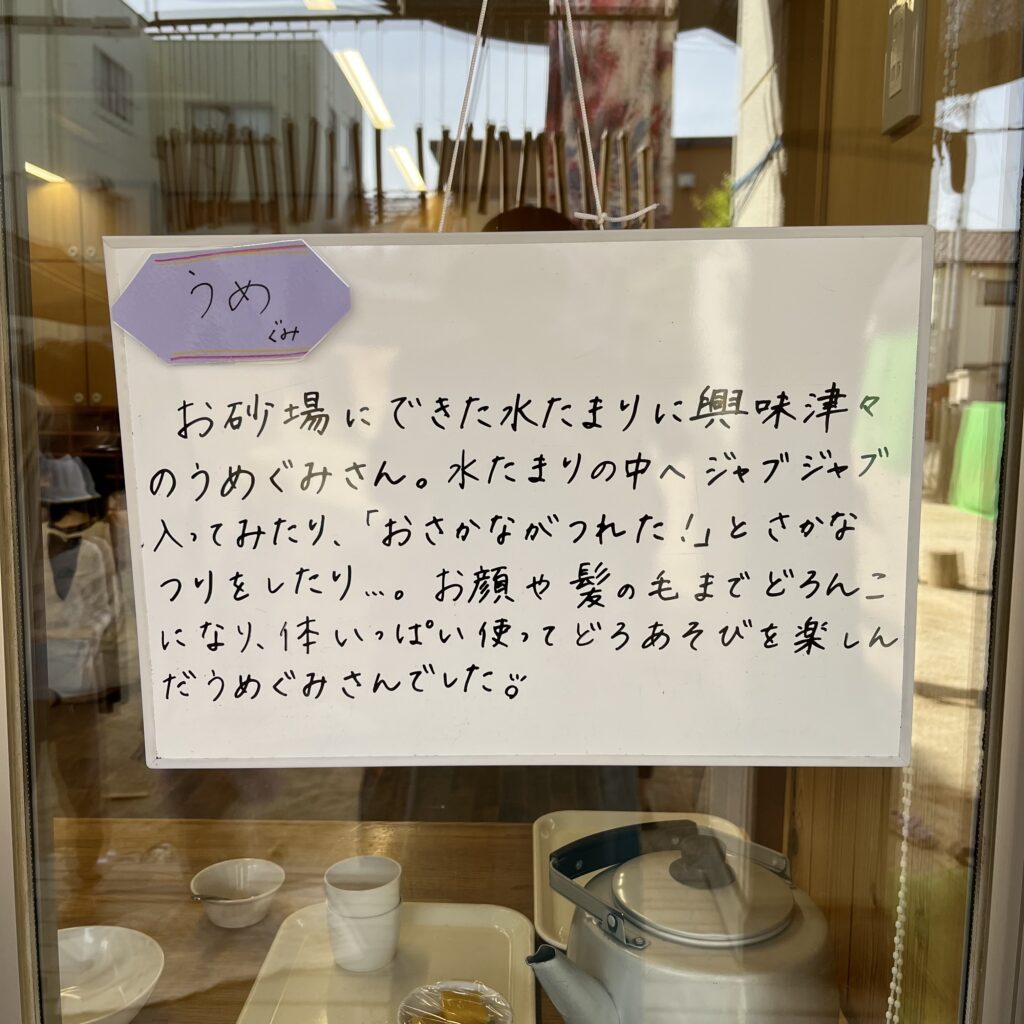 うめ
ぐみ
お砂場にできた水たまりに興味津々
のうめぐみさん。水たまりの中へジャブジャブ
入ってみたり、「おさかながつれた!」とさかな
つりをしたり…。お顔や髪の毛までどろんこ
になり、体いっぱい使ってどろあそびを楽しん
だうめぐみさんでした。